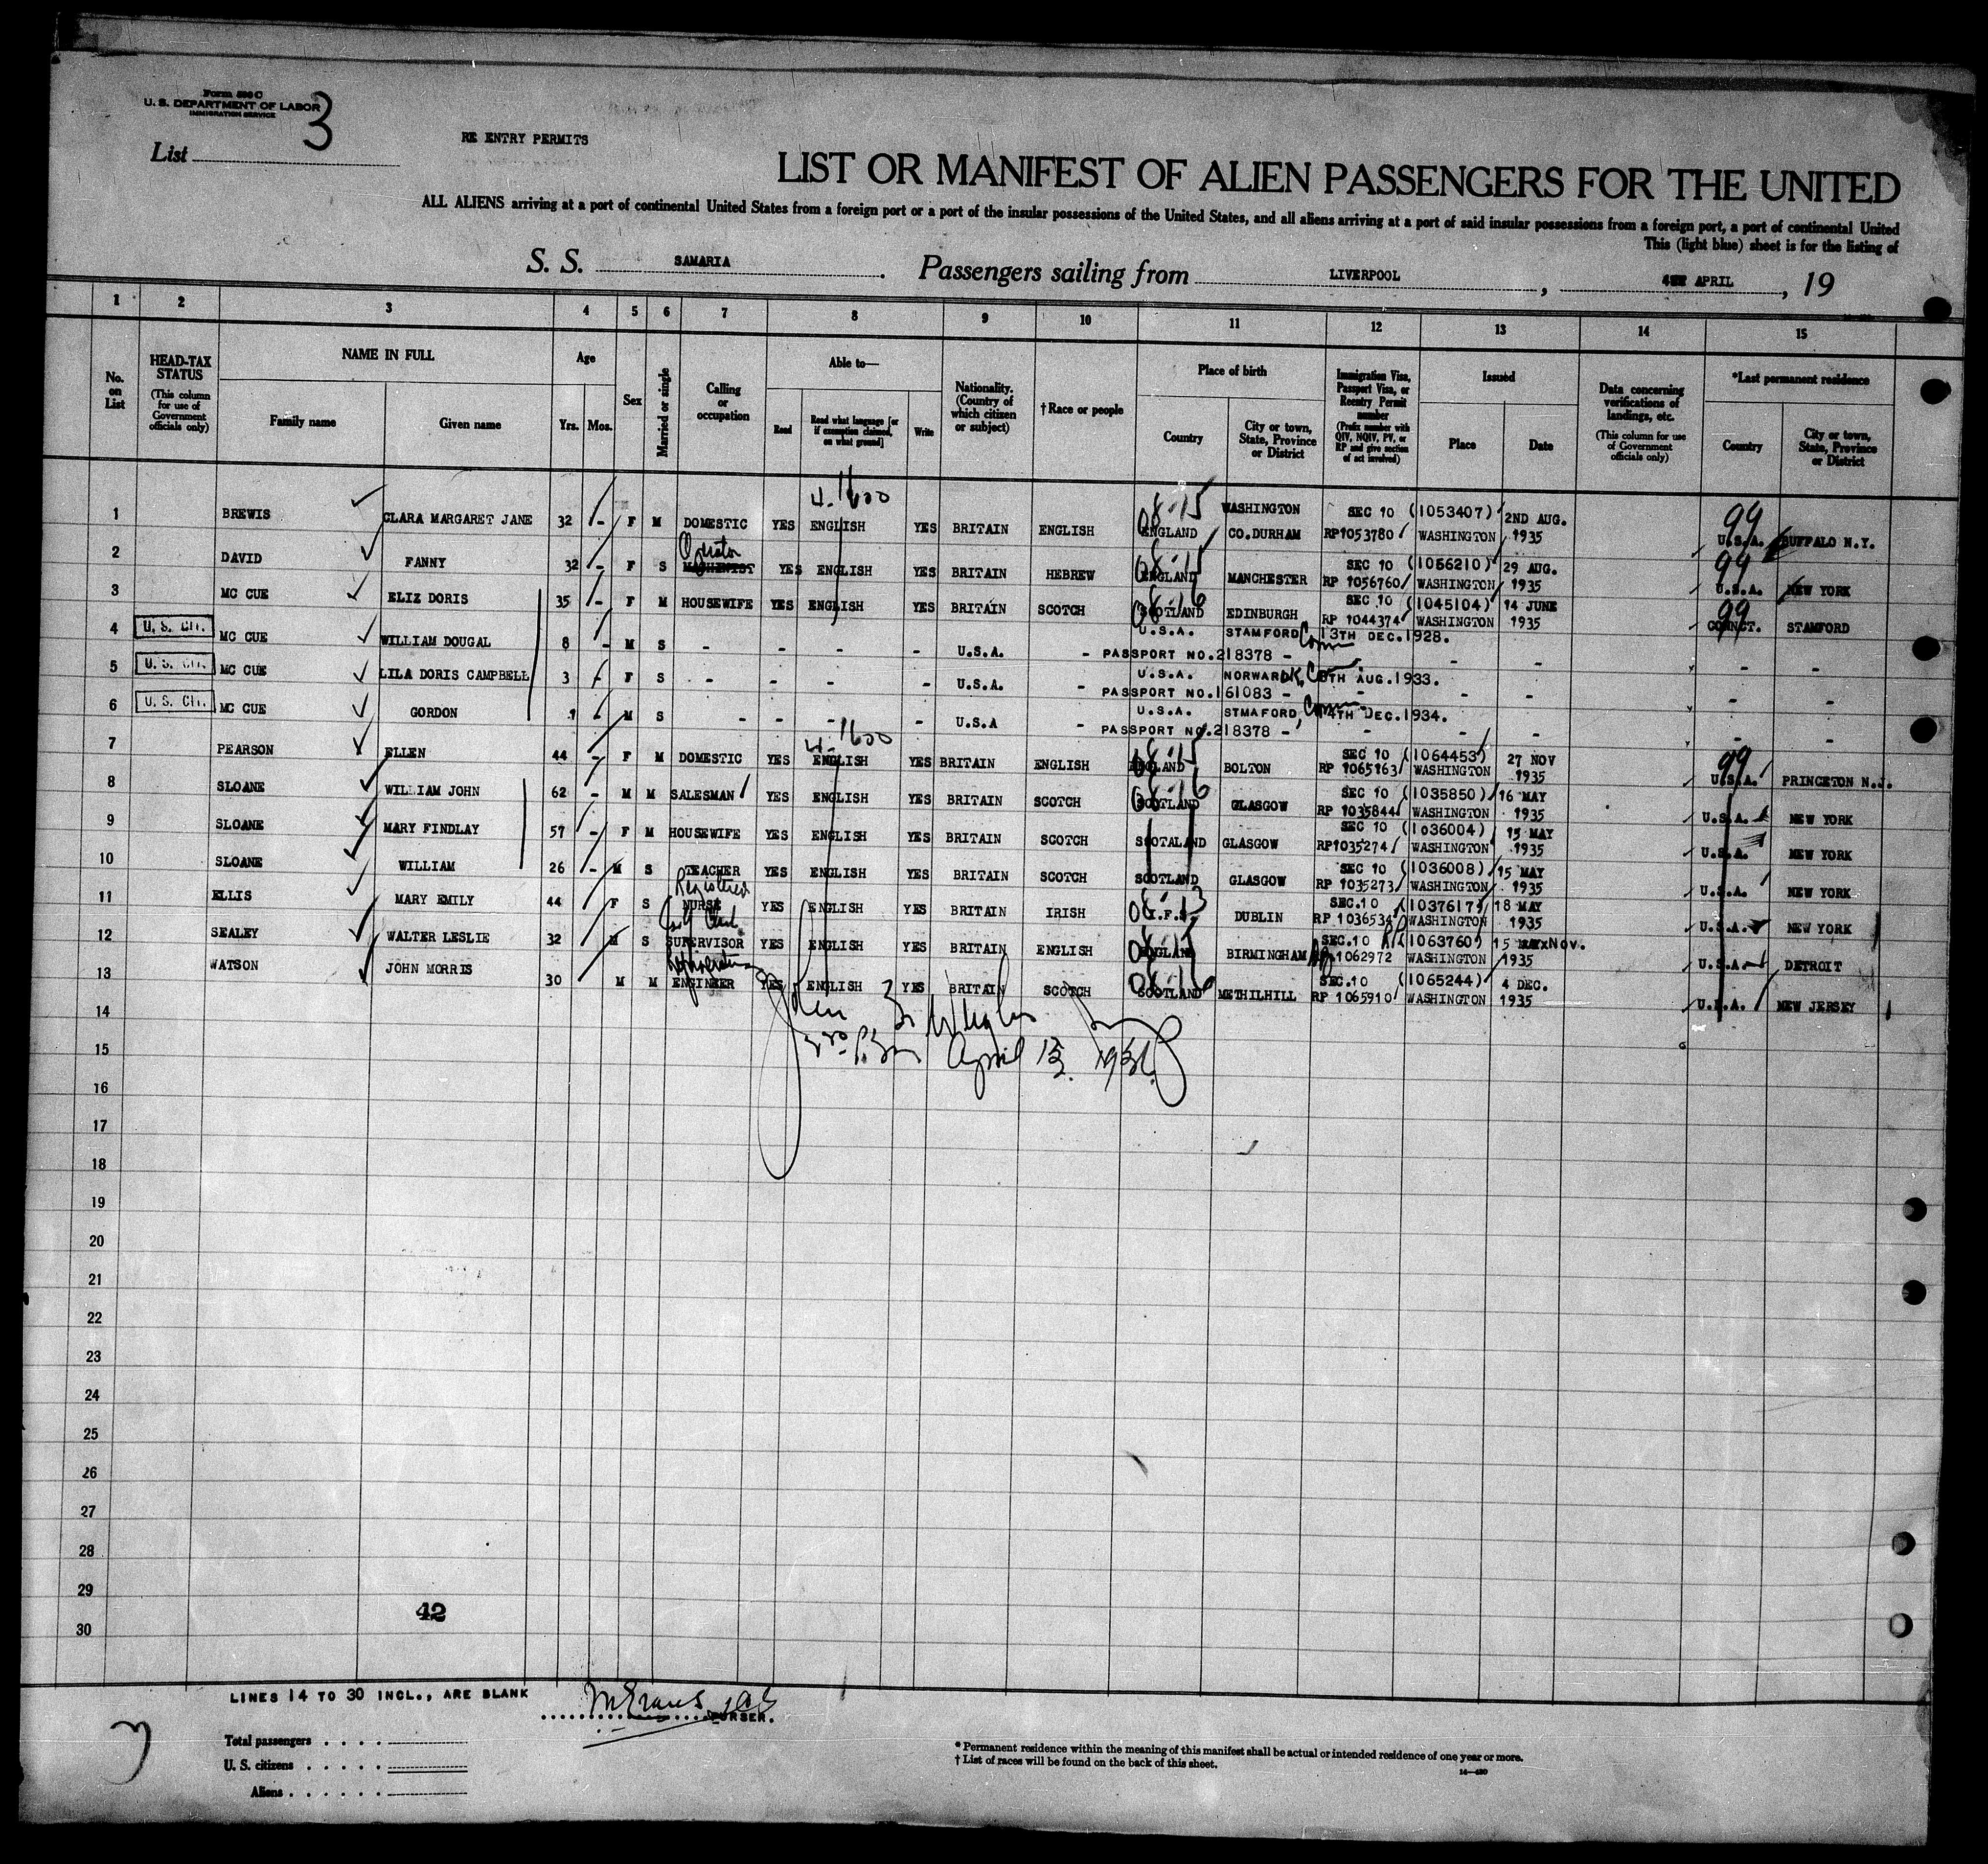 Form 500 C
U. S. DEPARTMENT OF LABOR
IMMIGRATION SERVICE
3
List
RE ENTRY PERMITS
LIST OR MANIFEST OF ALIEN PASSENGERS FOR THE UNITED
ALL ALIENS arriving at a port of continental United States from a foreign port or a port of the insular possessions of the United States, and all aliens arriving at a port of said insular possessions from a foreign port, a port of continental United
This (light blue) sheet is for the listing of
S. S. SAMARIA. Passengers sailing from LIVERPOOL, 4TH APRIL, 19
1 2 3 4 5 6 7 8 9 10 11 12 13 14 15
No. on List
HEAD-TAX STATUS (This column for use of Government officials only)
NAME IN FULL
Family name
Given name
Age
Yrs. Mos.
Sex
Married or single
Calling or occupation
Able to—
Read
Read what language [or if exemption claimed, on what ground]
Write
Nationality. (Country of which citizen or subject)
† Race or people
Place of birth
Country
City or town, State, Province or District
Immigration Visa, Passport Visa, or Reentry Permit number (Prefix number with QIV, NQIV, PV, or RP and give section of act involved)
Issued
Place
Date
Data concerning verifications of landings, etc. (This column for use of Government officials only)
*Last permanent residence
Country
City or town, State, Province or District
4-1600
1 BREWIS CLARA MARGARET JANE 32 - F M DOMESTIC YES ENGLISH YES BRITAIN ENGLISH 08-15 ENGLAND WASHINGTON CO.DURHAM SEC 10 (1053407) RP1053780 WASHINGTON 2ND AUG. 1935 99 U.S.A. BUFFALO N.Y.
2 DAVID FANNY 32 - F S MACHINIST Operator YES ENGLISH YES BRITAIN HEBREW 08-15 ENGLAND MANCHESTER SEC 10 (1056210) RP 1056760 WASHINGTON 29 AUG. 1935 99 U.S.A. NEW YORK
3 MC CUE ELIZ DORIS 35 - F M HOUSEWIFE YES ENGLISH YES BRITAIN SCOTCH 08-16 SCOTLAND EDINBURGH SEC 10 (1045104) RP 1044374 WASHINGTON 14 JUNE 1935 99 CONNCT. STAMFORD
4 U. S. CIT. MC CUE WILLIAM DOUGAL 8 - M S - - - - U.S.A. - U.S.A. STAMFORD, Conn 13TH DEC.1928. PASSPORT NO.218378 - - -
5 U. S. CIT. MC CUE LILA DORIS CAMPBELL 3 - F S - - - - U.S.A. - U.S.A. NORWARDK, Conn 8TH AUG.1933. PASSPORT NO.161083 - - -
6 U. S. CIT. MC CUE GORDON 1 - M S - - - - U.S.A - U.S.A. STMAFORD, Conn 14TH DEC.1934. PASSPORT NO.218378 - - -
4-1600
7 PEARSON ELLEN 44 - F M DOMESTIC YES ENGLISH YES BRITAIN ENGLISH 08-15 ENGLAND BOLTON SEC 10 (1064453) RP 1065163 WASHINGTON 27 NOV 1935 99 U.S.A. PRINCETON N.J.
8 SLOANE WILLIAM JOHN 62 - M M SALESMAN YES ENGLISH YES BRITAIN SCOTCH 08-16 SCOTLAND GLASGOW SEC 10 (1035850) RP 1035844 WASHINGTON 16 MAY 1935 U.S.A. NEW YORK
9 SLOANE MARY FINDLAY 57 - F M HOUSEWIFE YES ENGLISH YES BRITAIN SCOTCH SCOTALAND GLASGOW SEC 10 (1036004) RP1035274 WASHINGTON 15 MAY 1935 U.S.A. NEW YORK
10 SLOANE WILLIAM 26 - M S TEACHER YES ENGLISH YES BRITAIN SCOTCH SCOTLAND GLASGOW SEC 10 (1036008) RP 1035273 WASHINGTON 15 MAY 1935 U.S.A. NEW YORK
11 ELLIS MARY EMILY 44 F S Registered NURSE YES ENGLISH YES BRITAIN IRISH 08-13 I.F.S. DUBLIN SEC.10 (1037617) RP 1036534 WASHINGTON 18 MAY 1935 U.S.A. NEW YORK
12 SEALEY WALTER LESLIE 32 M S Golf Club SUPERVISOR YES ENGLISH YES BRITAIN ENGLISH 08-15 ENGLAND BIRMINGHAM SEC.10 RP (1063760) 1062972 WASHINGTON 15 MAYx Nov. 1935 U.S.A. DETROIT
13 WATSON JOHN MORRIS 30 M M Refrigeration ENGINEER YES ENGLISH YES BRITAIN SCOTCH 08-16 SCOTLAND METHILHILL SEC.10 (1065244) RP 1065910 WASHINGTON 4 DEC. 1935 U.S.A. NEW JERSEY
14
15
April 13, 1936
16
17
18
19
20
21
22
23
24
25
26
27
28
29
42
30
LINES 14 TO 30 INCL., ARE BLANK
PURSER.
Total passengers
U. S. citizens
Aliens
* Permanent residence within the meaning of this manifest shall be actual or intended residence of one year or more.
† List of races will be found on the back of this sheet.
14—430